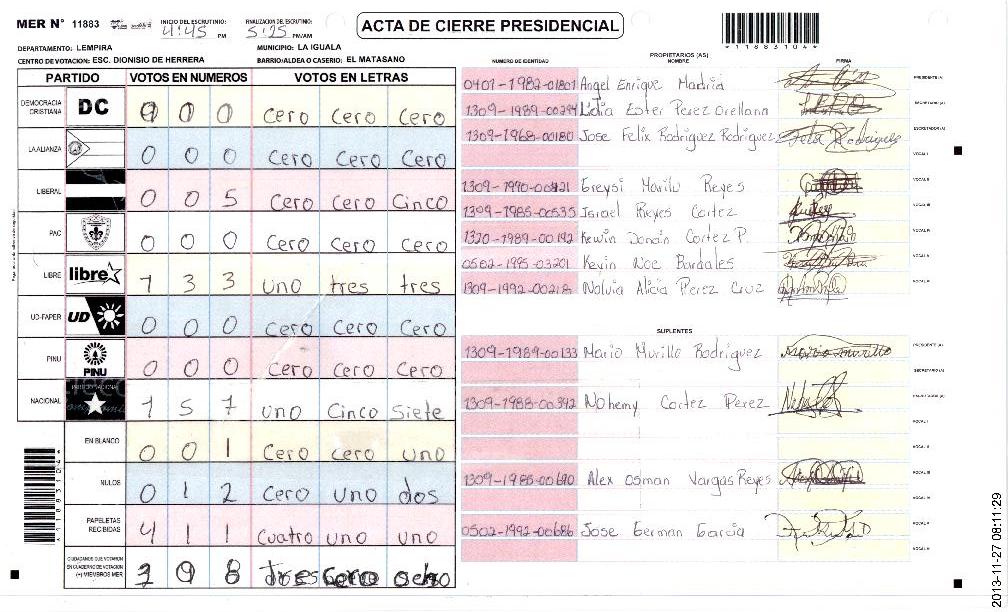 MER N° 11883
INICIO DEL ESCRUTINIO: 4:45 PM
FINALIZACION DE ESCRUTINIO: 5:25 PM/AM
ACTA DE CIERRE PRESIDENCIAL
*11883104*
DEPARTAMENTO: LEMPIRA
MUNICIPIO: LA IGUALA
CENTRO DE VOTACION: ESC. DIONISIO DE HERRERA
BARRIO/ALDEA O CASERIO: EL MATASANO
PARTIDO VOTOS EN NUMEROS VOTOS EN LETRAS
DEMOCRACIA CRISTIANA DC 0 0 0 Cero Cero Cero
LA ALIANZA 0 0 0 Cero Cero Cero
LIBERAL 0 0 5 Cero Cero Cinco
PAC 0 0 0 Cero Cero Cero
LIBRE libre 1 3 3 uno tres tres
UD-FAPER UD 0 0 0 Cero Cero Cero
PINU PINU 0 0 0 Cero Cero Cero
NACIONAL 1 5 7 uno Cinco Siete
EN BLANCO 0 0 1 Cero Cero uno
NULOS 0 1 2 Cero uno dos
PAPELETAS RECIBIDAS 4 1 1 Cuatro uno uno
CIUDADANOS QUE VOTARON EN CUADERNO DE VOTACION (+) MIEMBROS MER 8 tres Cero ocho
PROPIETARIOS (AS)
NUMERO DE IDENTIDAD NOMBRE FIRMA
0401-1982-01801 Angel Enrique Madrid PRESIDENTE (A)
1309-1989-00294 Lidia Ester Perez Orellana SECRETARIO (A)
1309-1968-00180 Jose Felix Rodriguez Rodriguez Felix Rodriguez ESCRUTADOR (A)
VOCAL I
1309-1990-00421 Greysi Marilu Reyes VOCAL II
1309-1985-00535 Israel Reyes Cortez VOCAL III
1320-1989-00192 Kewin Donán Cortez P. VOCAL IV
0502-1995-03201 Kevin Noe Bardales VOCAL V
1309-1992-00218 Nolvia Alicia Perez Cruz VOCAL VI
SUPLENTES
1309-1989-00133 Mario Murillo Rodriguez Mario Murillo PRESIDENTE (A)
SECRETARIO (A)
1309-1988-00392 Nohemy Cortez Perez ESCRUTADOR (A)
VOCAL I
VOCAL II
1309-1985-00690 Alex Osman Vargas Reyes VOCAL III
VOCAL IV
0502-1992-00686 Jose German Garcia VOCAL V
VOCAL VI
*11883104*
2013-11-27 08:11:29